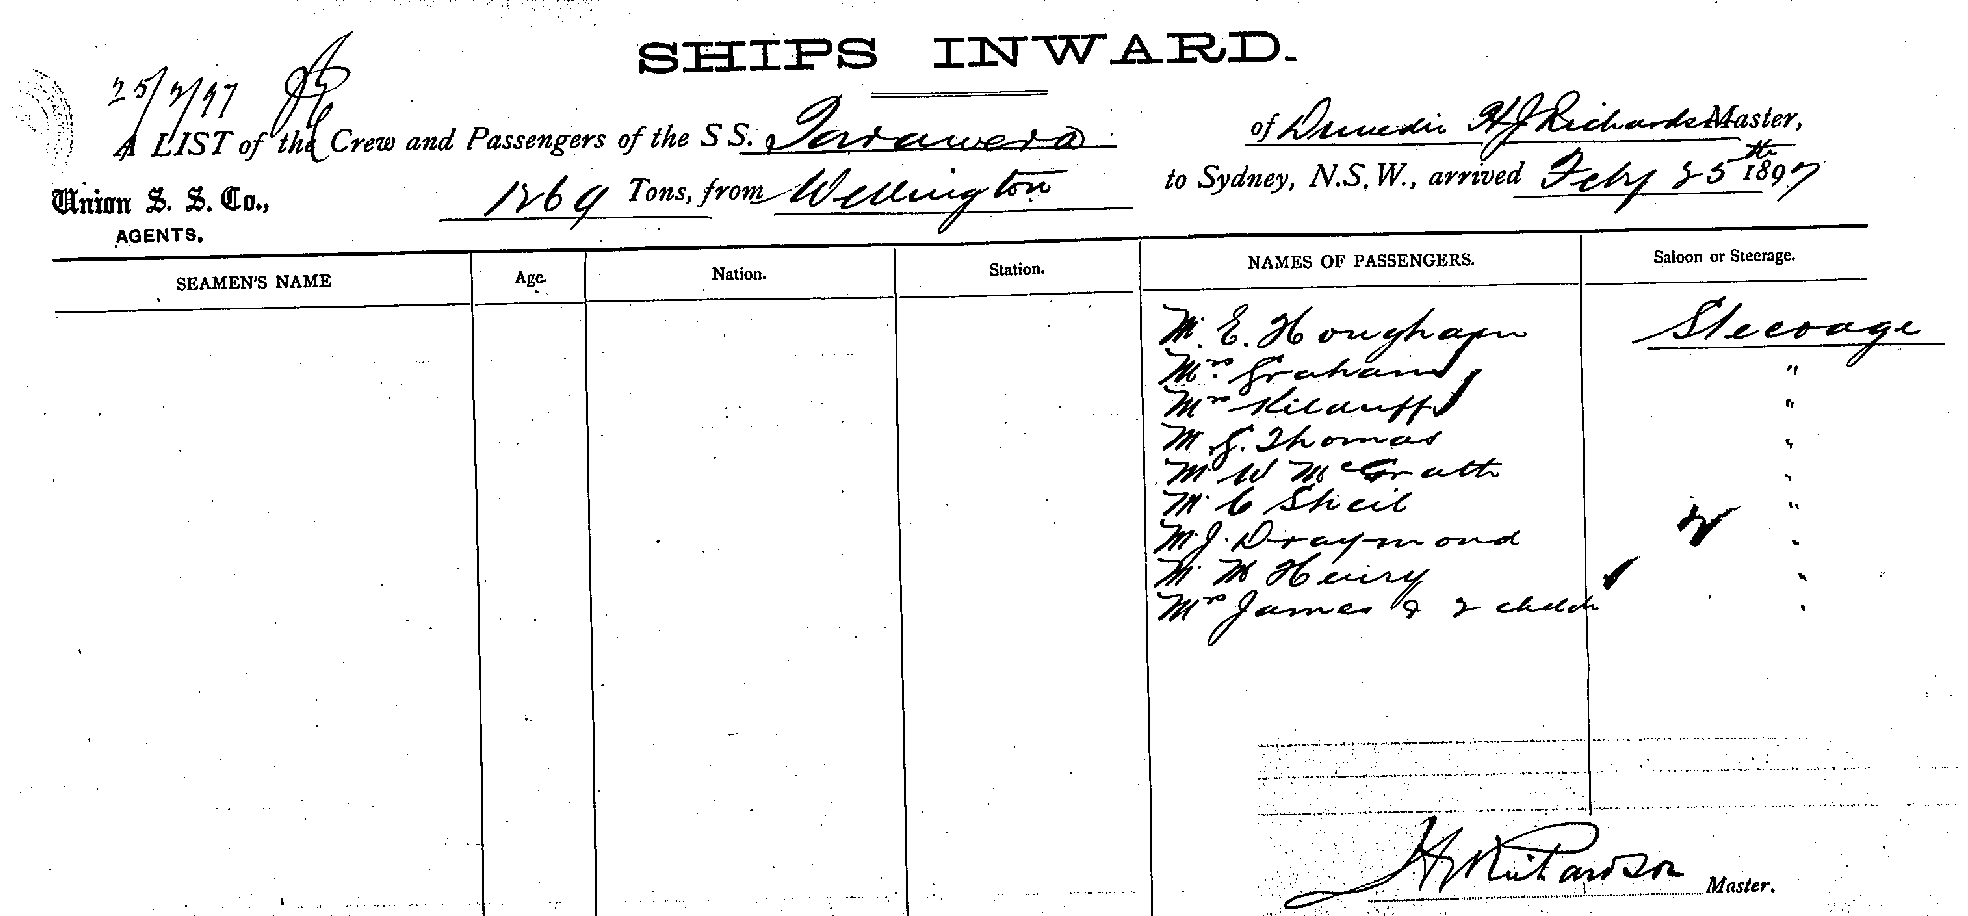 SHIPS INWARD.
25/2/97
A LIST of the Crew and Passengers of the S S. Tarawera of Dunedin H J Richardson Master,
Union S. S. Co., 1269 Tons, from Wellington to Sydney, N.S.W., arrived Feby 25th 1897
AGENTS.
SEAMEN'S NAME Age. Nation. Station. NAMES OF PASSENGERS. Saloon or Steerage.
Mr. E. Hougham Steerage
Mrs. Graham "
Mrs Kilduff "
Mr G. Thomas "
Mr W McGrath "
Mr C Sheil "
Mr J. Draymond "
Mr M Henry "
Mrs James & 2 childn "
H J Richardson Master.